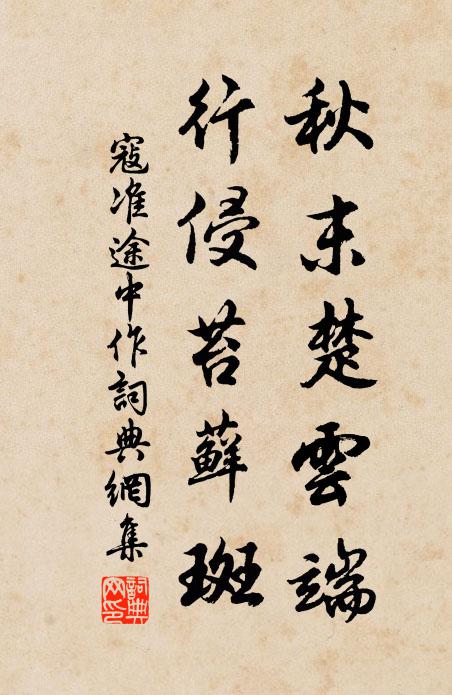 秋末楚雲端
行侵苔蘚斑
寇准途中作詞典網集
詞典網印